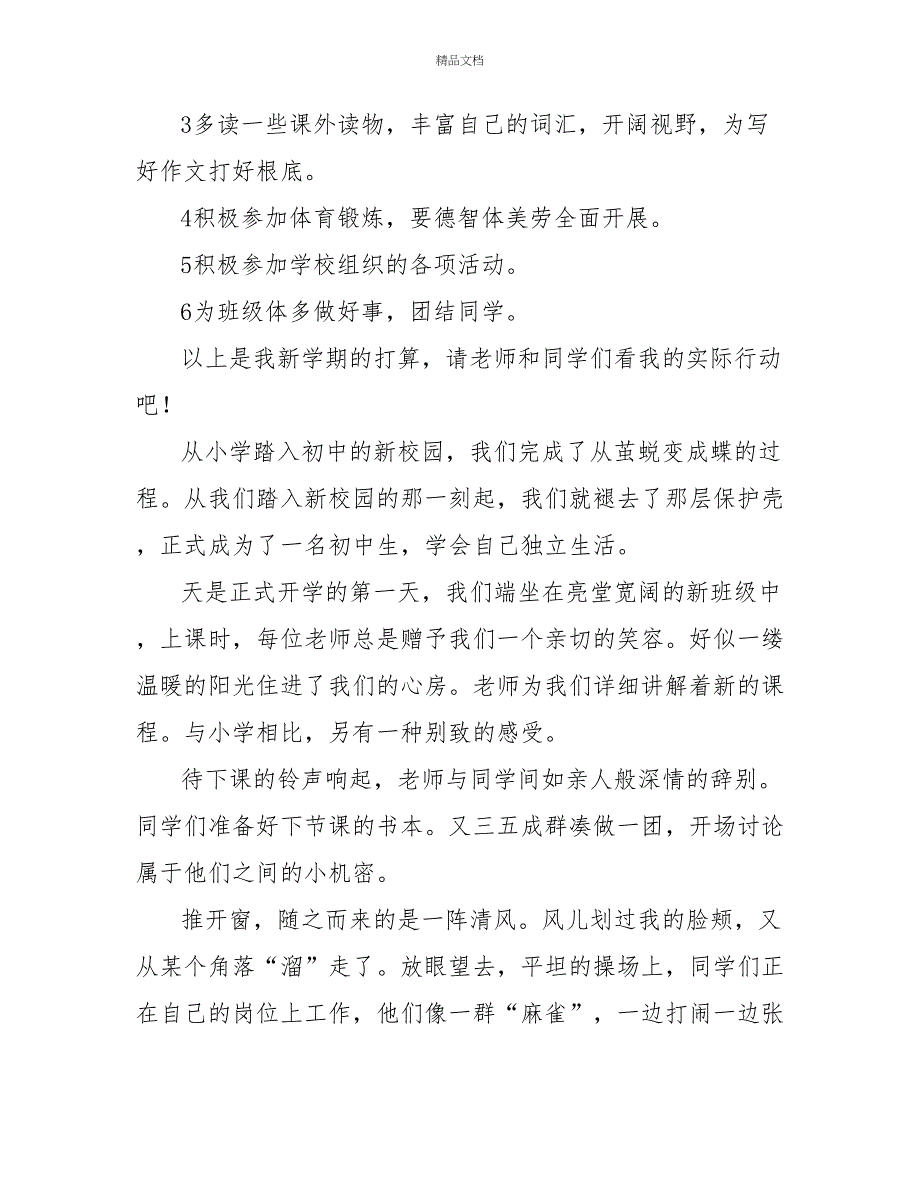 精品文档
3多读一些课外读物，丰富自己的词汇，开阔视野，为写
好作文打好根底。
4积极参加体育锻炼，要德智体美劳全面开展。
5积极参加学校组织的各项活动。
6为班级体多做好事，团结同学。
以上是我新学期的打算，请老师和同学们看我的实际行动
吧！
从小学踏入初中的新校园，我们完成了从茧蜕变成蝶的过
程。从我们踏入新校园的那一刻起，我们就褪去了那层保护壳
，正式成为了一名初中生，学会自己独立生活。
天是正式开学的第一天，我们端坐在亮堂宽阔的新班级中
，上课时，每位老师总是赠予我们一个亲切的笑容。好似一缕
温暖的阳光住进了我们的心房。老师为我们详细讲解着新的课
程。与小学相比，另有一种别致的感受。
待下课的铃声响起，老师与同学间如亲人般深情的辞别。
同学们准备好下节课的书本。又三五成群凑做一团，开场讨论
属于他们之间的小机密。
推开窗，随之而来的是一阵清风。风儿划过我的脸颊，又
从某个角落“溜”走了。放眼望去，平坦的操场上，同学们正
在自己的岗位上工作，他们像一群“麻雀”，一边打闹一边张